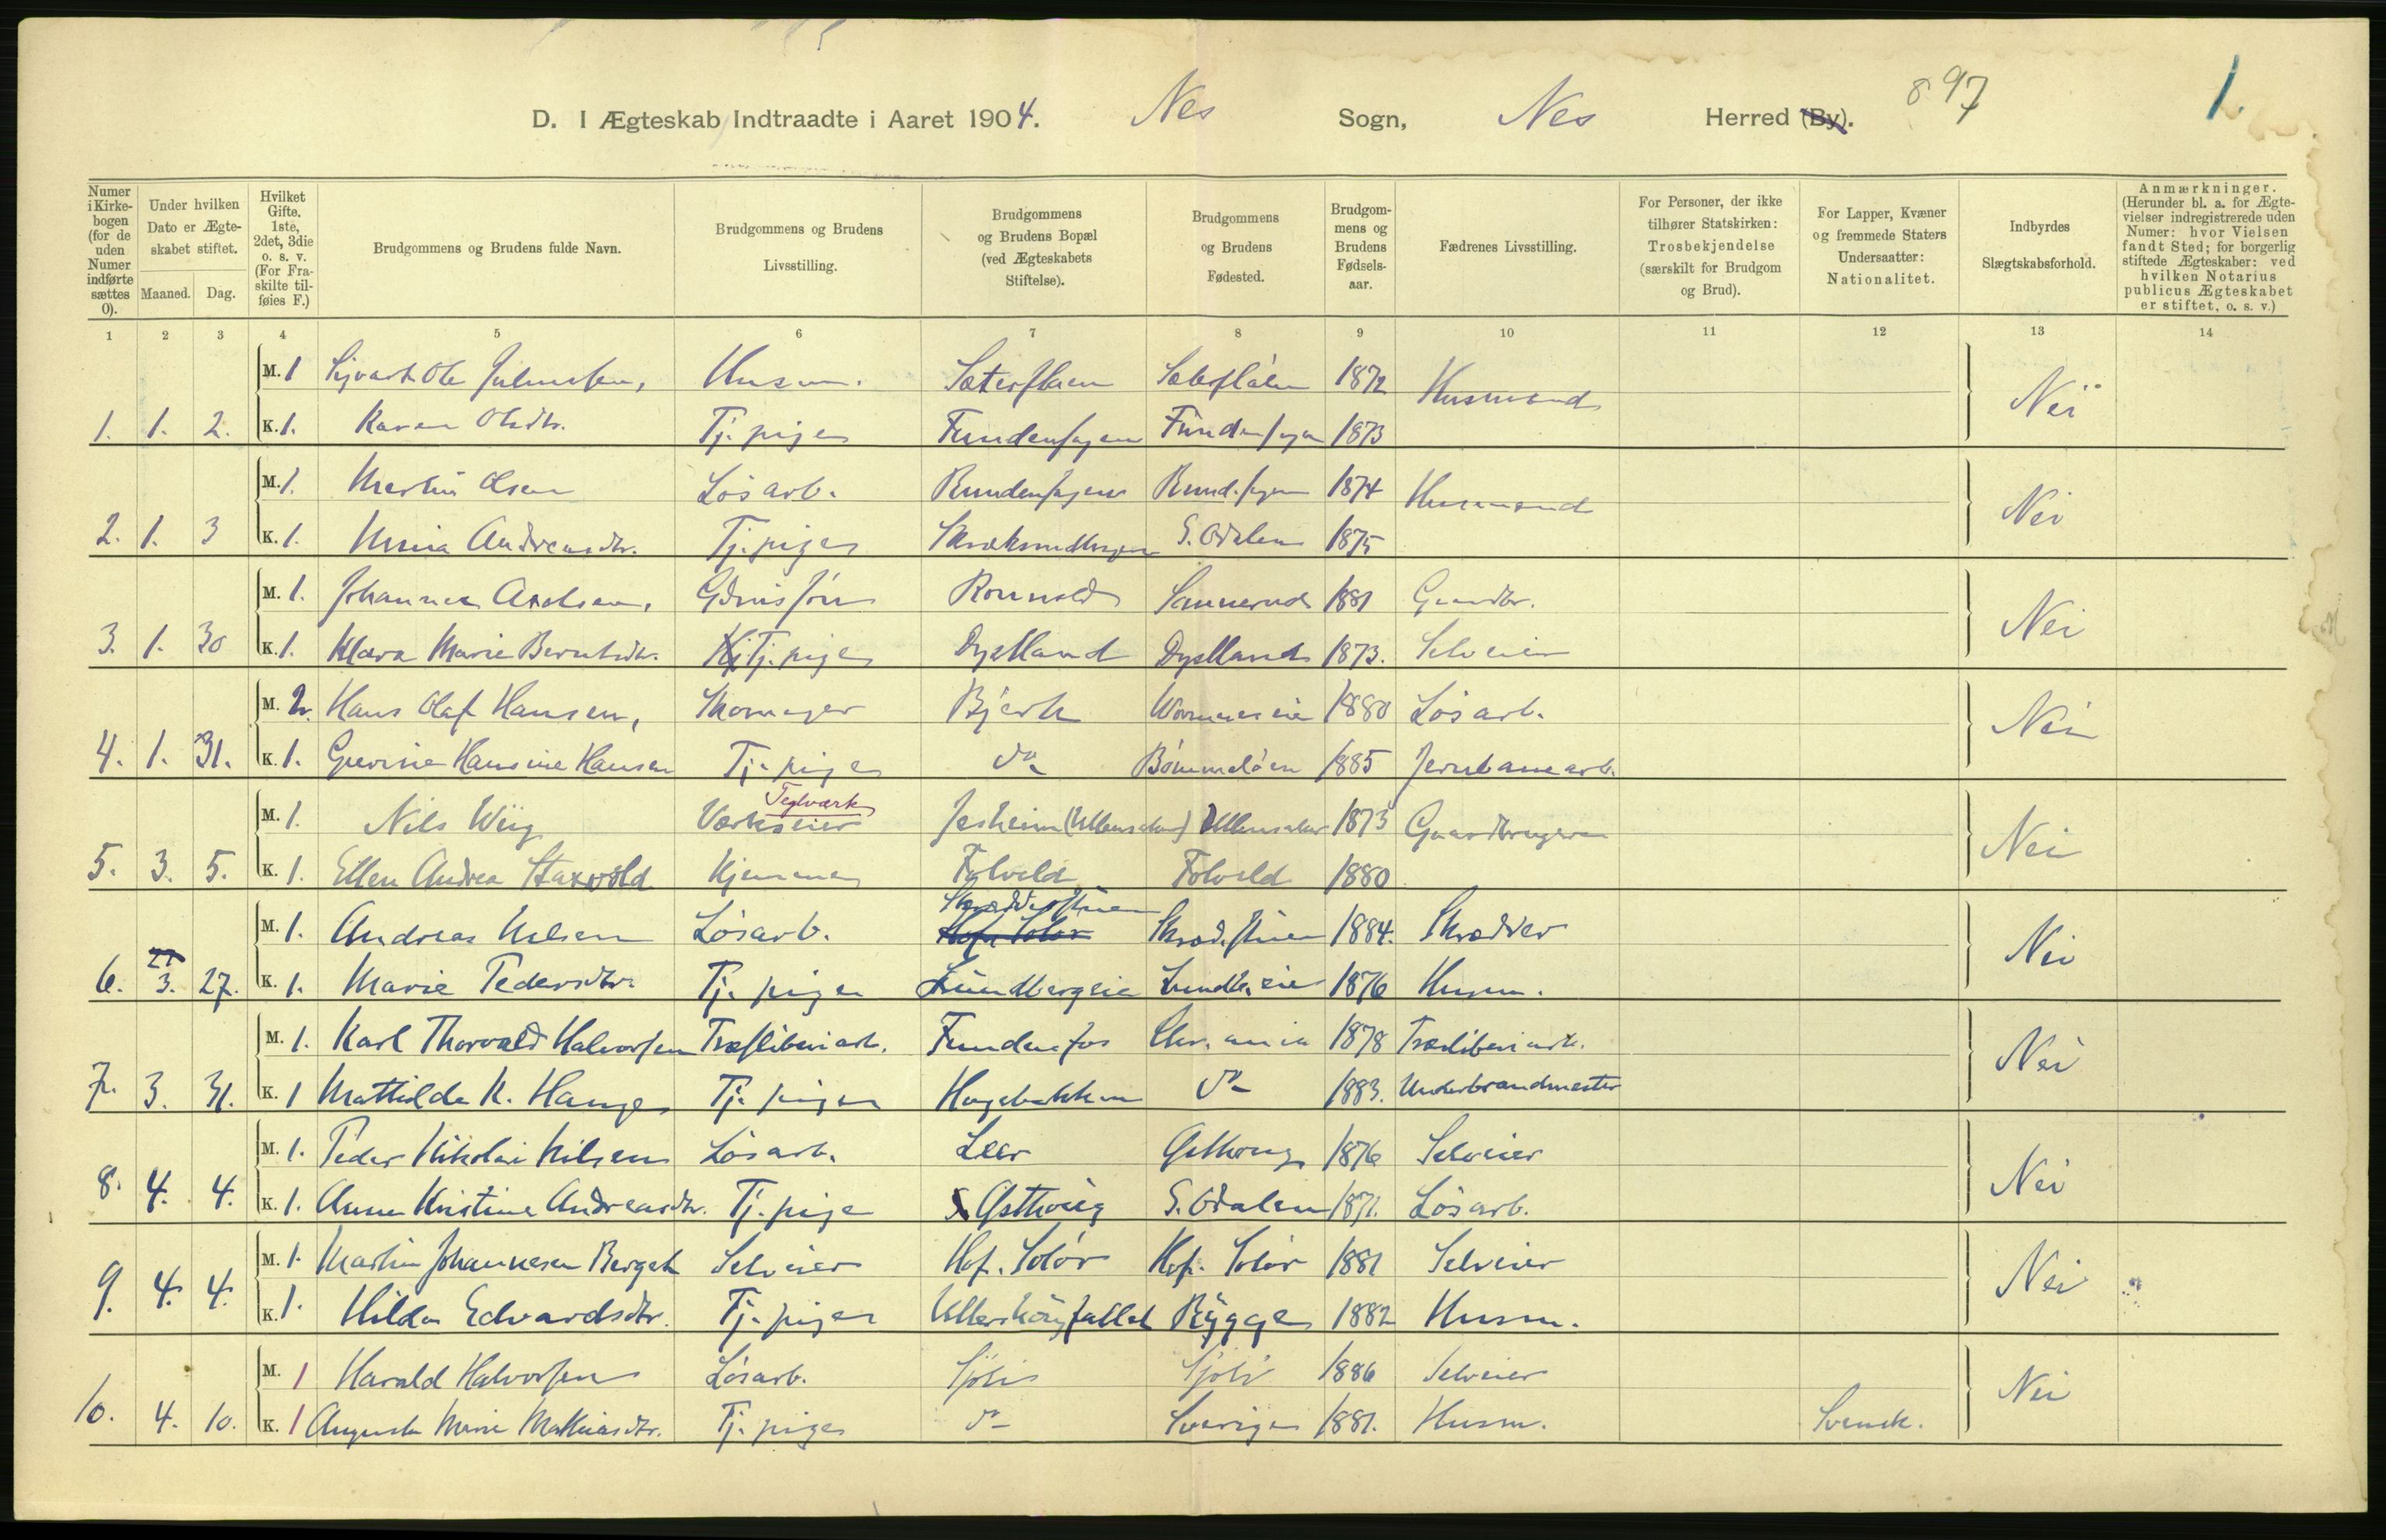 897
1.
D. I Ægteskab Indtraadte i Aaret 1904. Nes Sogn, Nes Herred (By).
Numer i Kirkebogen (for de uden Numer indførte sættes 0).
Under hvilken Dato er Ægteskabet stiftet.
Maaned. Dag.
Hvilket Gifte. 1ste, 2det, 3die o. s. v. (For Fraskilte tilføies F.)
Brudgommens og Brudens fulde Navn.
Brudgommens og Brudens Livsstilling.
Brudgommens og Brudens Bopæl (ved Ægteskabets Stiftelse).
Brudgommens og Brudens Fødested.
Brudgommens og Brudens Fødselsaar.
Fædrenes Livsstilling.
For Personer, der ikke tilhører Statskirken: Trosbekjendelse (særskilt for Brudgom og Brud).
For Lapper, Kvæner og fremmede Staters Undersaatter: Nationalitet.
Indbyrdes Slægtskabsforhold.
Anmærkninger. (Herunder bl. a. for Ægtevielser indregistrerede uden Numer: hvor Vielsen fandt Sted; for borgerlig stiftede Ægteskaber: ved hvilken Notarius publicus Ægteskabet er stiftet, o. s. v.)
1 2 3 4 5 6 7 8 9 10 11 12 13 14
M. 1 Ole Husm. 1872 Husmand Nei
1. 1. 2. K. 1. Karen Olsdtr. Tj. pige 1873
M. 1. Martin Olsen Lösarb. 1874 Husmand Nei
2. 1. 3 K. 1. Andreasdtr. Tj. pige S. Odalen 1875
M. 1. Johannes 1881 Gaardbr. Nei
3. 1. 30 K. 1. Klara Marie Berntsdtr. Tj. pige Dystland Dystland 1873. Selveier
M. 2. Hans Olaf Hansen, Skomager Bjerk 1880 Lösarb. Nei
4. 1. 31. K. 1. Hansine Hansen Tj. pige do 1885 Jernbanearb.
M. 1. Nils Wiig Teglværk Værkseier Jesheim (Ullensaker) Ullensaker 1873 Gaardbrugere Nei
5. 3. 5. K. 1. Ellen Andrea Hjemme Folveld Folveld 1880
M. 1. Andreas Nilsen Lösarb. Hof. Solør 1884. Skrædder Nei
6. 3. 27. K. 1. Marie Pedersdtr. Tj. pige Lundbergeie Lundb. eie 1876 Husm.
M. 1. Karl Thorvald Halvorsen Træsliberiarb. Fundenfos Chr.ania 1878 Træsliberiarb. Nei
7. 3. 31. K. 1 Mathilde K. Hauge Tj. pige Hagebakken do 1883. Underbrandmester
M. 1. Peder Nikolai Nilsen Lösarb. Leer 1876 Selveier Nei
8. 4. 4. K. 1. Anne Kristine Andreasdtr. Tj. pige S. Odalen 1871. Lösarb.
M. 1. Martin Johannesen Berget Selveier Hof. Solör Hof. Solör 1881 Selveier Nei
9. 4. 4. K. 1. Hilda Edvardsdtr. Tj. pige Rygge 1882 Husm.
M. 1 Harald Halvorsen Lösarb. Sjöli Sjöli 1886 Selveier Nei
10. 4. 10. K. 1 Augusta Marie Mathiasdtr. Tj. pige do Sverige 1881. Husm. Svensk.